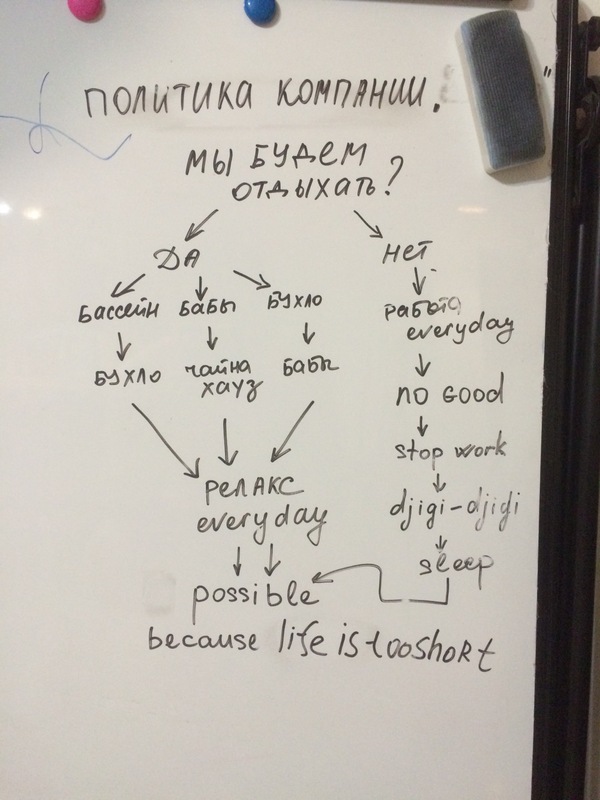 ПОЛИТИКА КОМПАНИИ.
МЫ БУДЕМ
ОТДЫХАТЬ?
ДА
НЕТ
Бассейн Бабы Бухло
работа
everyday
Бухло чайна
хауз
Бабы
no Good
stop work
релакс
everyday
djigi-djigi
sleep
possible
because life is too short